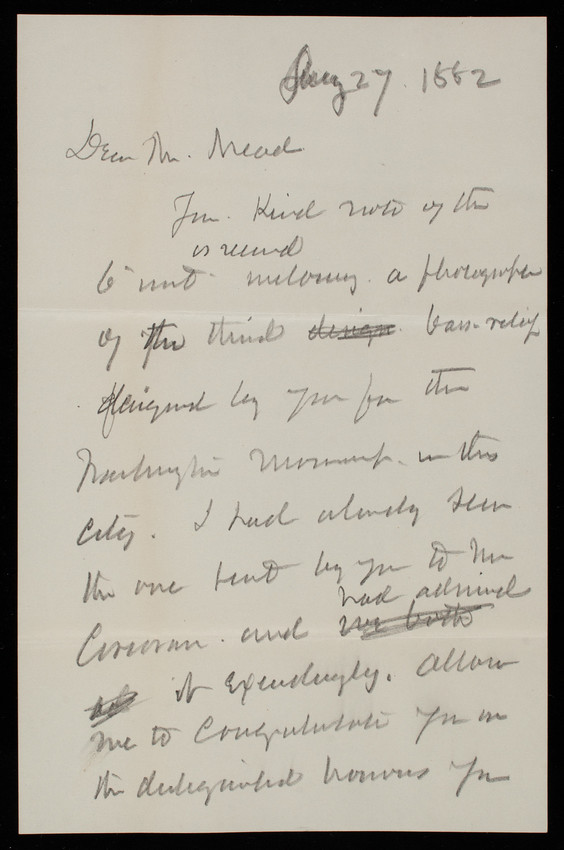 Aug 27. 1882
Dear Mr. Mead
Your Kind note of the
is received
6th inst. inclosing a photograph
of the third design bass-relief
designed by you for the
Washington Monument in this
City. I had already seen
the one sent by you to Mr
had admired
Corcoran and we both
it exceedingly. Allow
me to Congratulate you on
the distinguished honours you